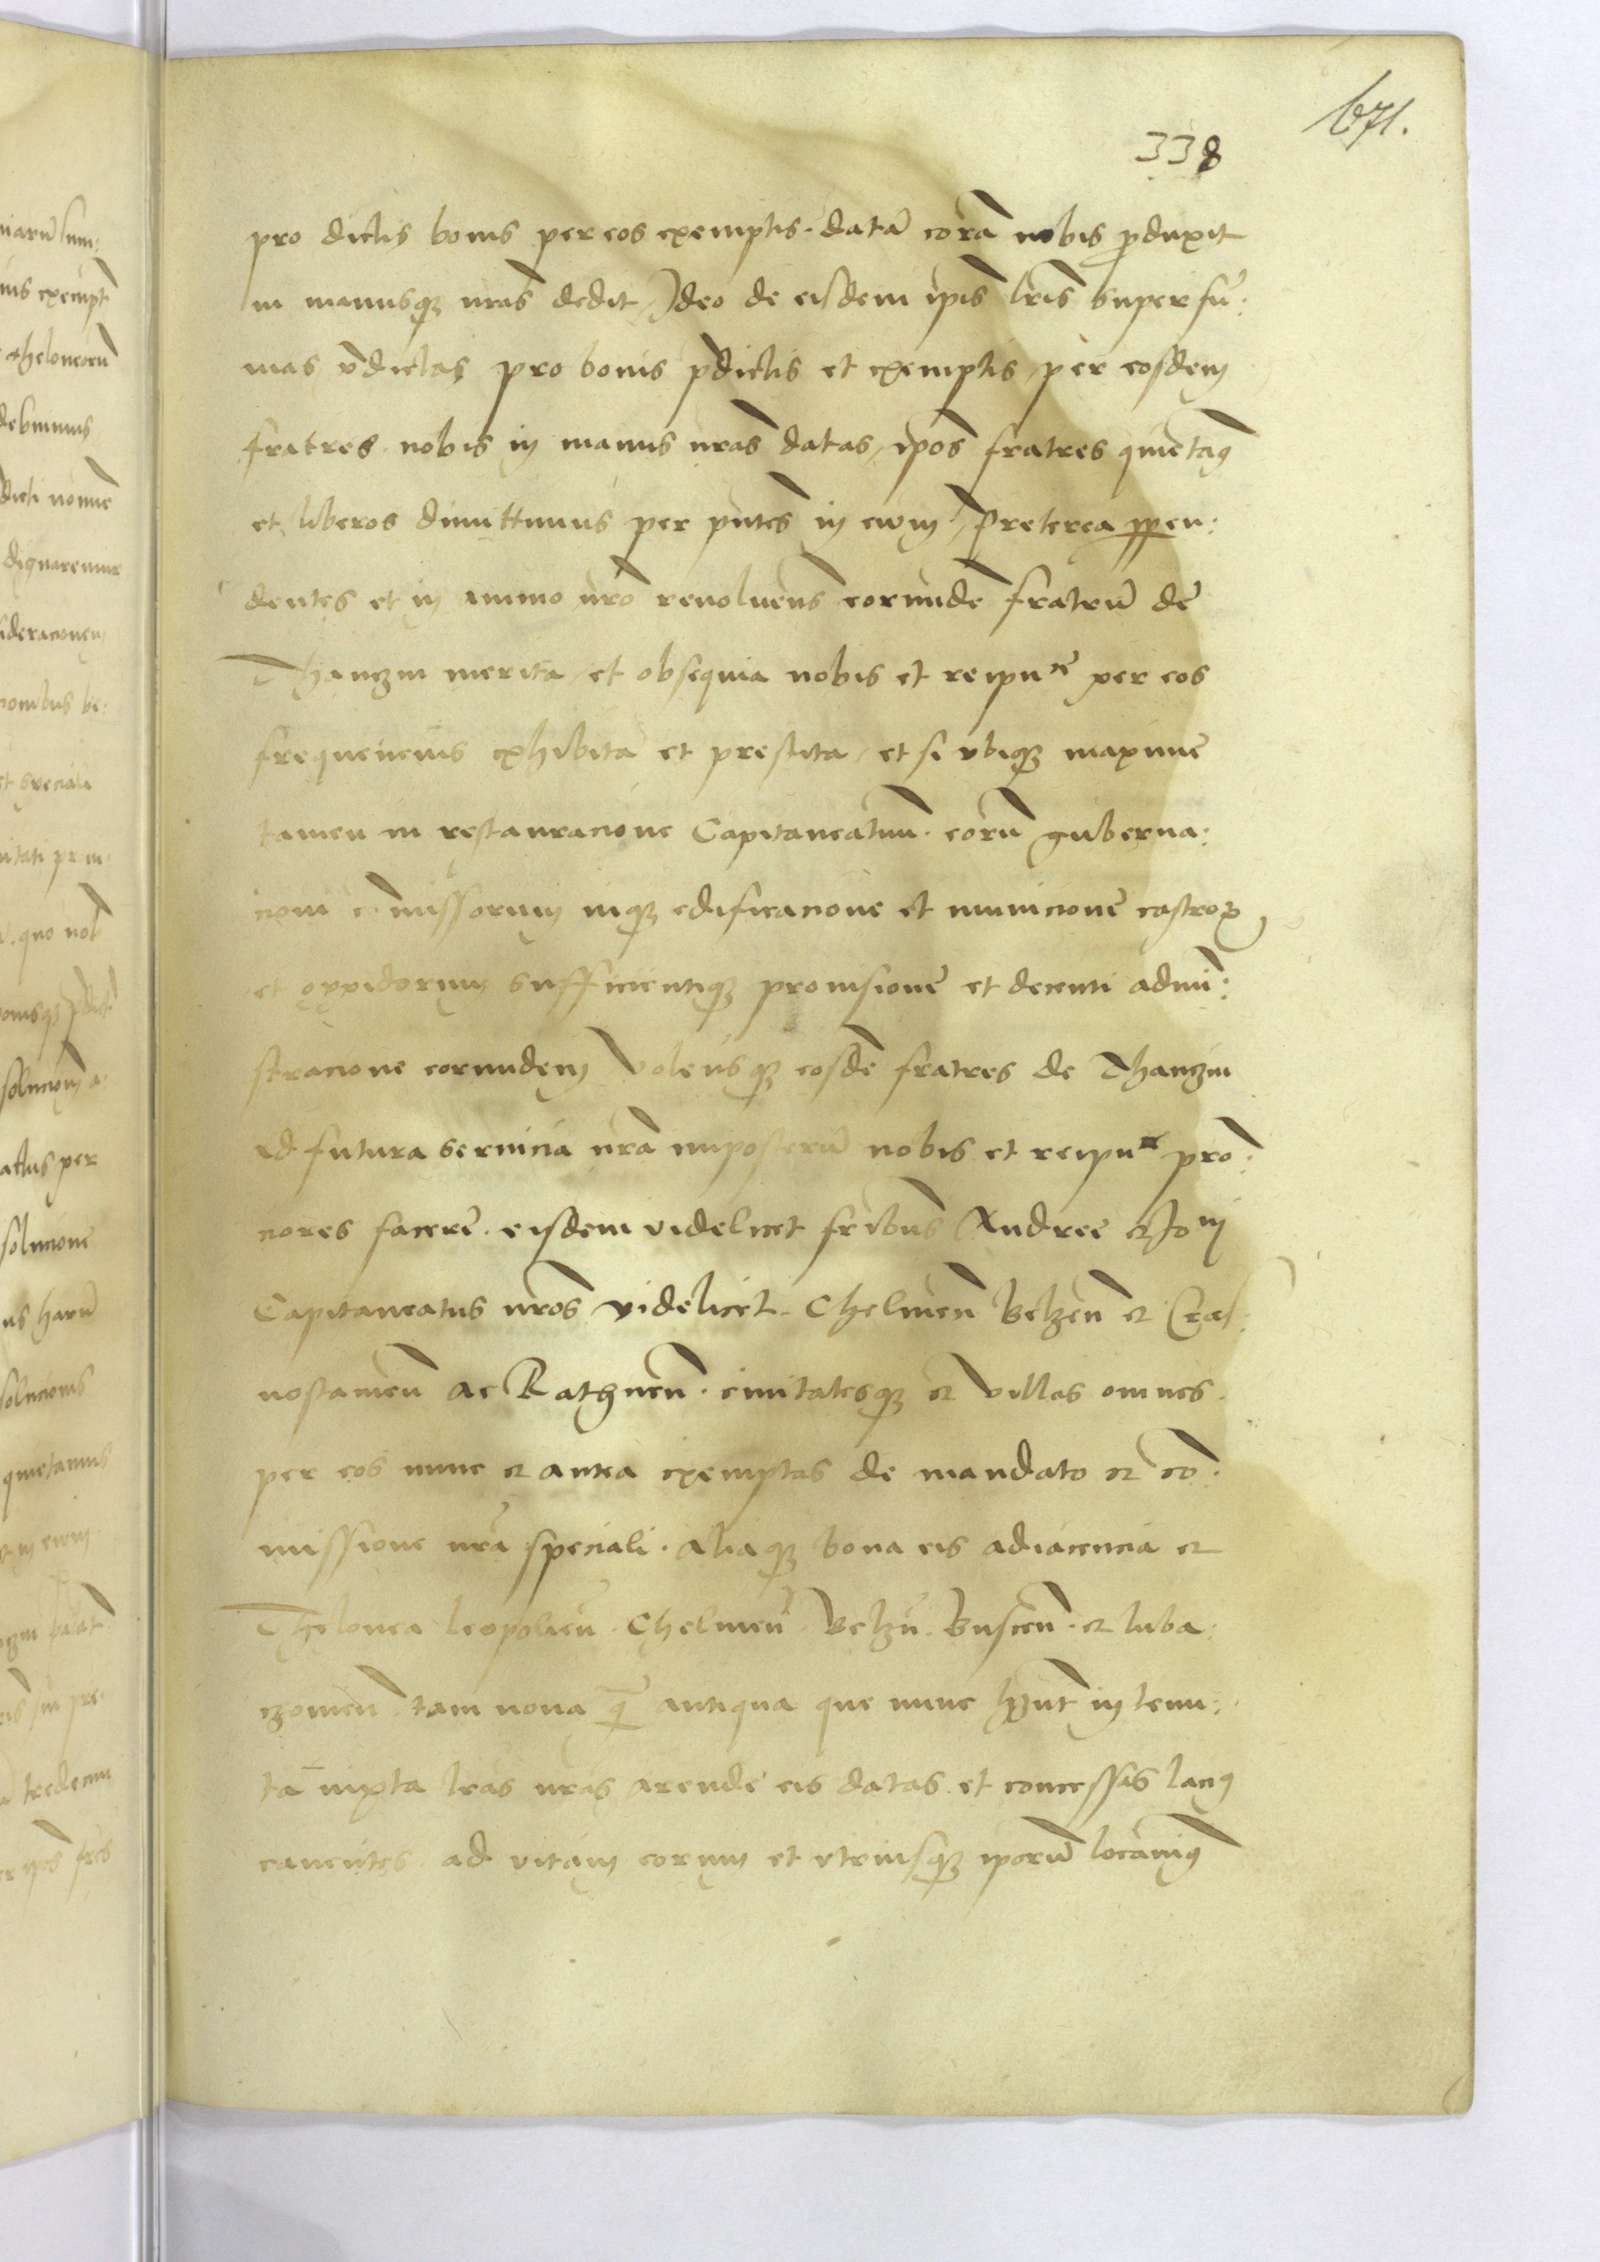 671.
338
pro dictis bonis per eos exemptis. datā corā nobis ꝓduxit
in manusqꝫ nrās dedit Ideo de eisdem ip̄is lr̄is super su:
mas p̄dictas pro bonis p̄dictis et exemptis per eosdem
fratres nobis in manus nrās datas, ip̄os fratres quietam9
et liberos dimittimus per pn̄tes in ewm. Preterea ꝑpen:
dentes et in animo nr̄o reuoluens eorundē fratrū de
Thanczin merita et obsequia nobis et reipu͞ce per eos
frequencius exhibita et prestita, et si vbiqꝫ maxime
tamen in restauracione Capitaneatuum. eorū guberna:
cioni cōmissorum inqꝫ edificacione et municione castroꝝ
et oppidorum sufficientiqꝫ prouisione et decenti admi:
stracione eorundem Volensqꝫ eosdē fratres de Thanczin
ad futura seruicia nrā imposterū nobis et reipu͞ce pro:
ciores facere. eisdem videlicet frībus Andree et Jo͞ni
Capitaneatus nr̄os videlicet. Chelmen̄ Belzen̄ et Cras:
nostawen̄ ac Rathnen̄. ciuitatesqꝫ et villas omnes.
per eos nunc et antea exemptas de mandato et cō:
missione nrā speciali. aliaqꝫ bona eis adiacencia et
Thelonea leopolien̄. Chelmen̄. Belzn̄. Buscen̄. et luba:
czowien̄ tam noua q̄ antiqua que nunc hn̄t in tenu:
ta iuxta lrās nrās arende eis datas et concessas lacius
canentes ad vitam eorum et vtriusqꝫ ip̄orū locauim9